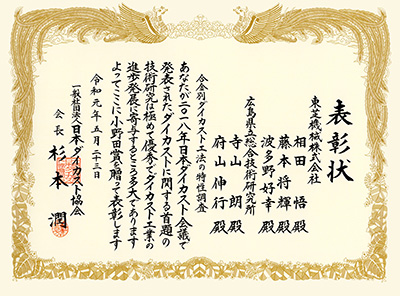 表彰状
東芝機械株式会社
相田 悟殿
藤本将輝殿
波多野好幸殿
広島県立総合技術研究所
寺山 朗殿
府山伸行殿
合金別ダイカスト工法の特性調査
あなたが二〇一八年日本ダイカスト会議で
発表されたダイカストに関する首題の
技術研究は極めて優秀でダイカスト工業の
進歩発展に寄与するところ多大であります
よってここに小野田賞を贈って表彰します
令和元年五月二十三日
一般社団法人日本ダイカスト協会
会長 杉本 潤